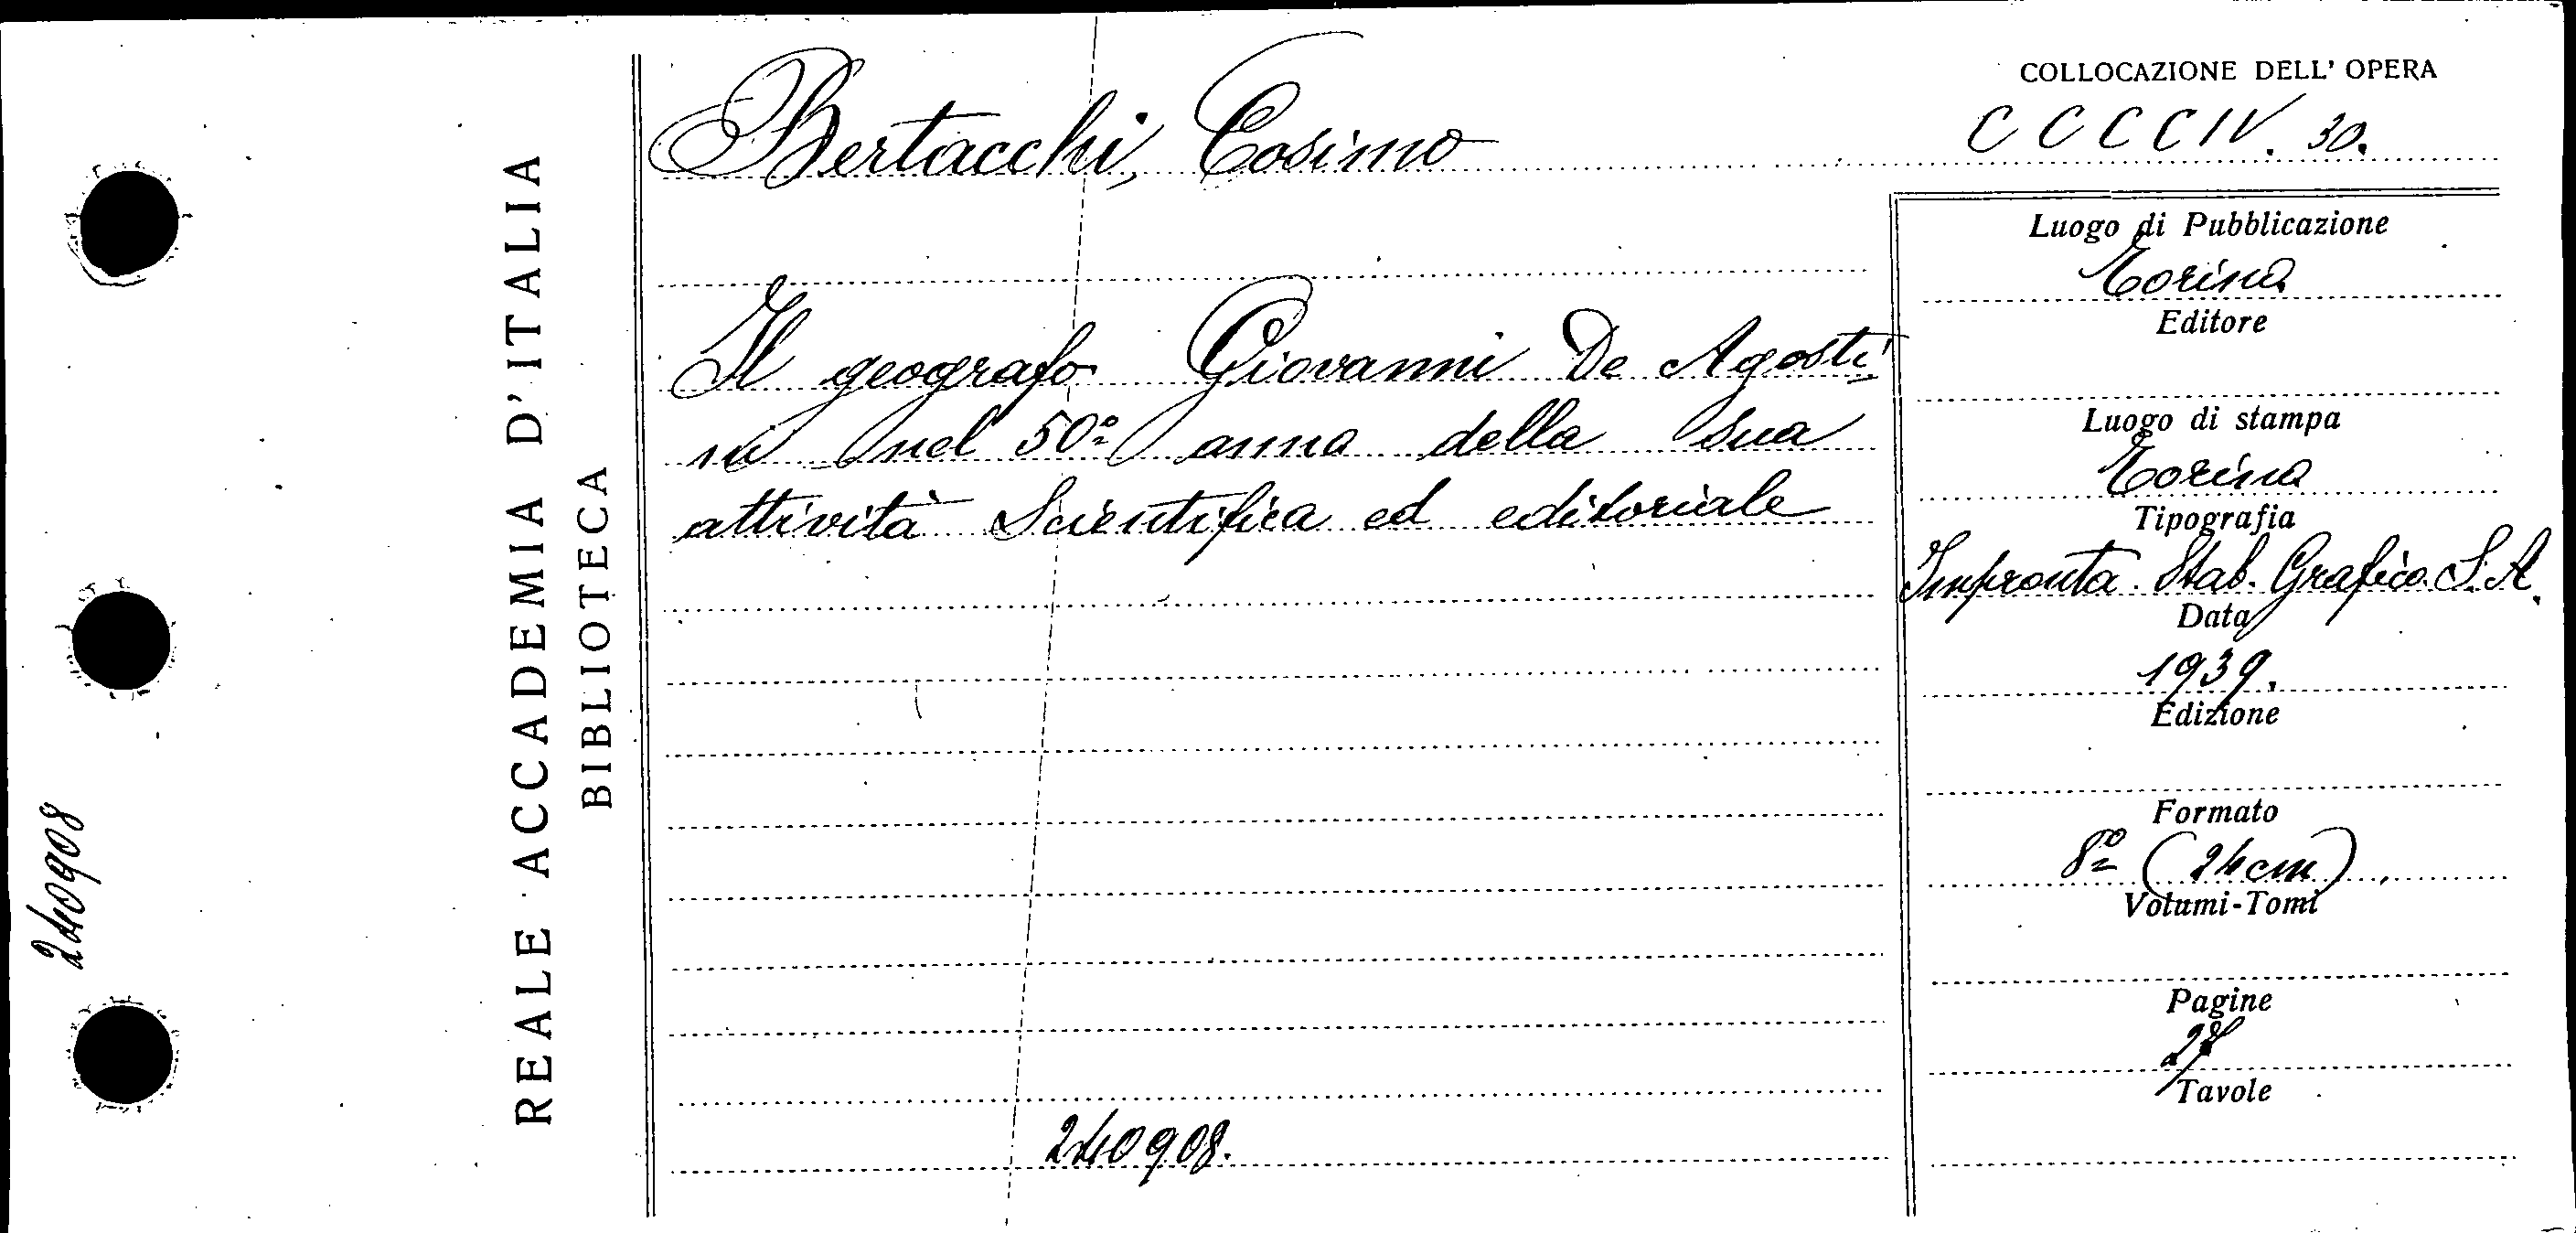 REALE ACCADEMIA D'ITALIA
BIBLIOTECA
240908
Bertacchi, Cosimo
Il geografo Giovanni De Agosti
ni nel 50º anno della sua
attività Scientifica ed editoriale
240908.
COLLOCAZIONE DELL' OPERA
CCCCIV. 30.
Luogo di Pubblicazione
Torino
Editore
Luogo di stampa
Torino
Tipografia
Impronta Stab. Grafico S. A.
Data
1939.
Edizione
Formato
8º (24cm).
Volumi-Tomi
Pagine
Tavole